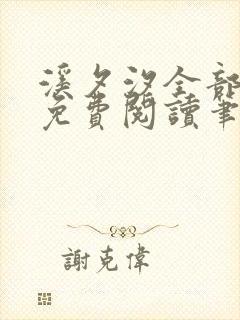 溪夕汐全部
免費閱讀筆
謝克偉